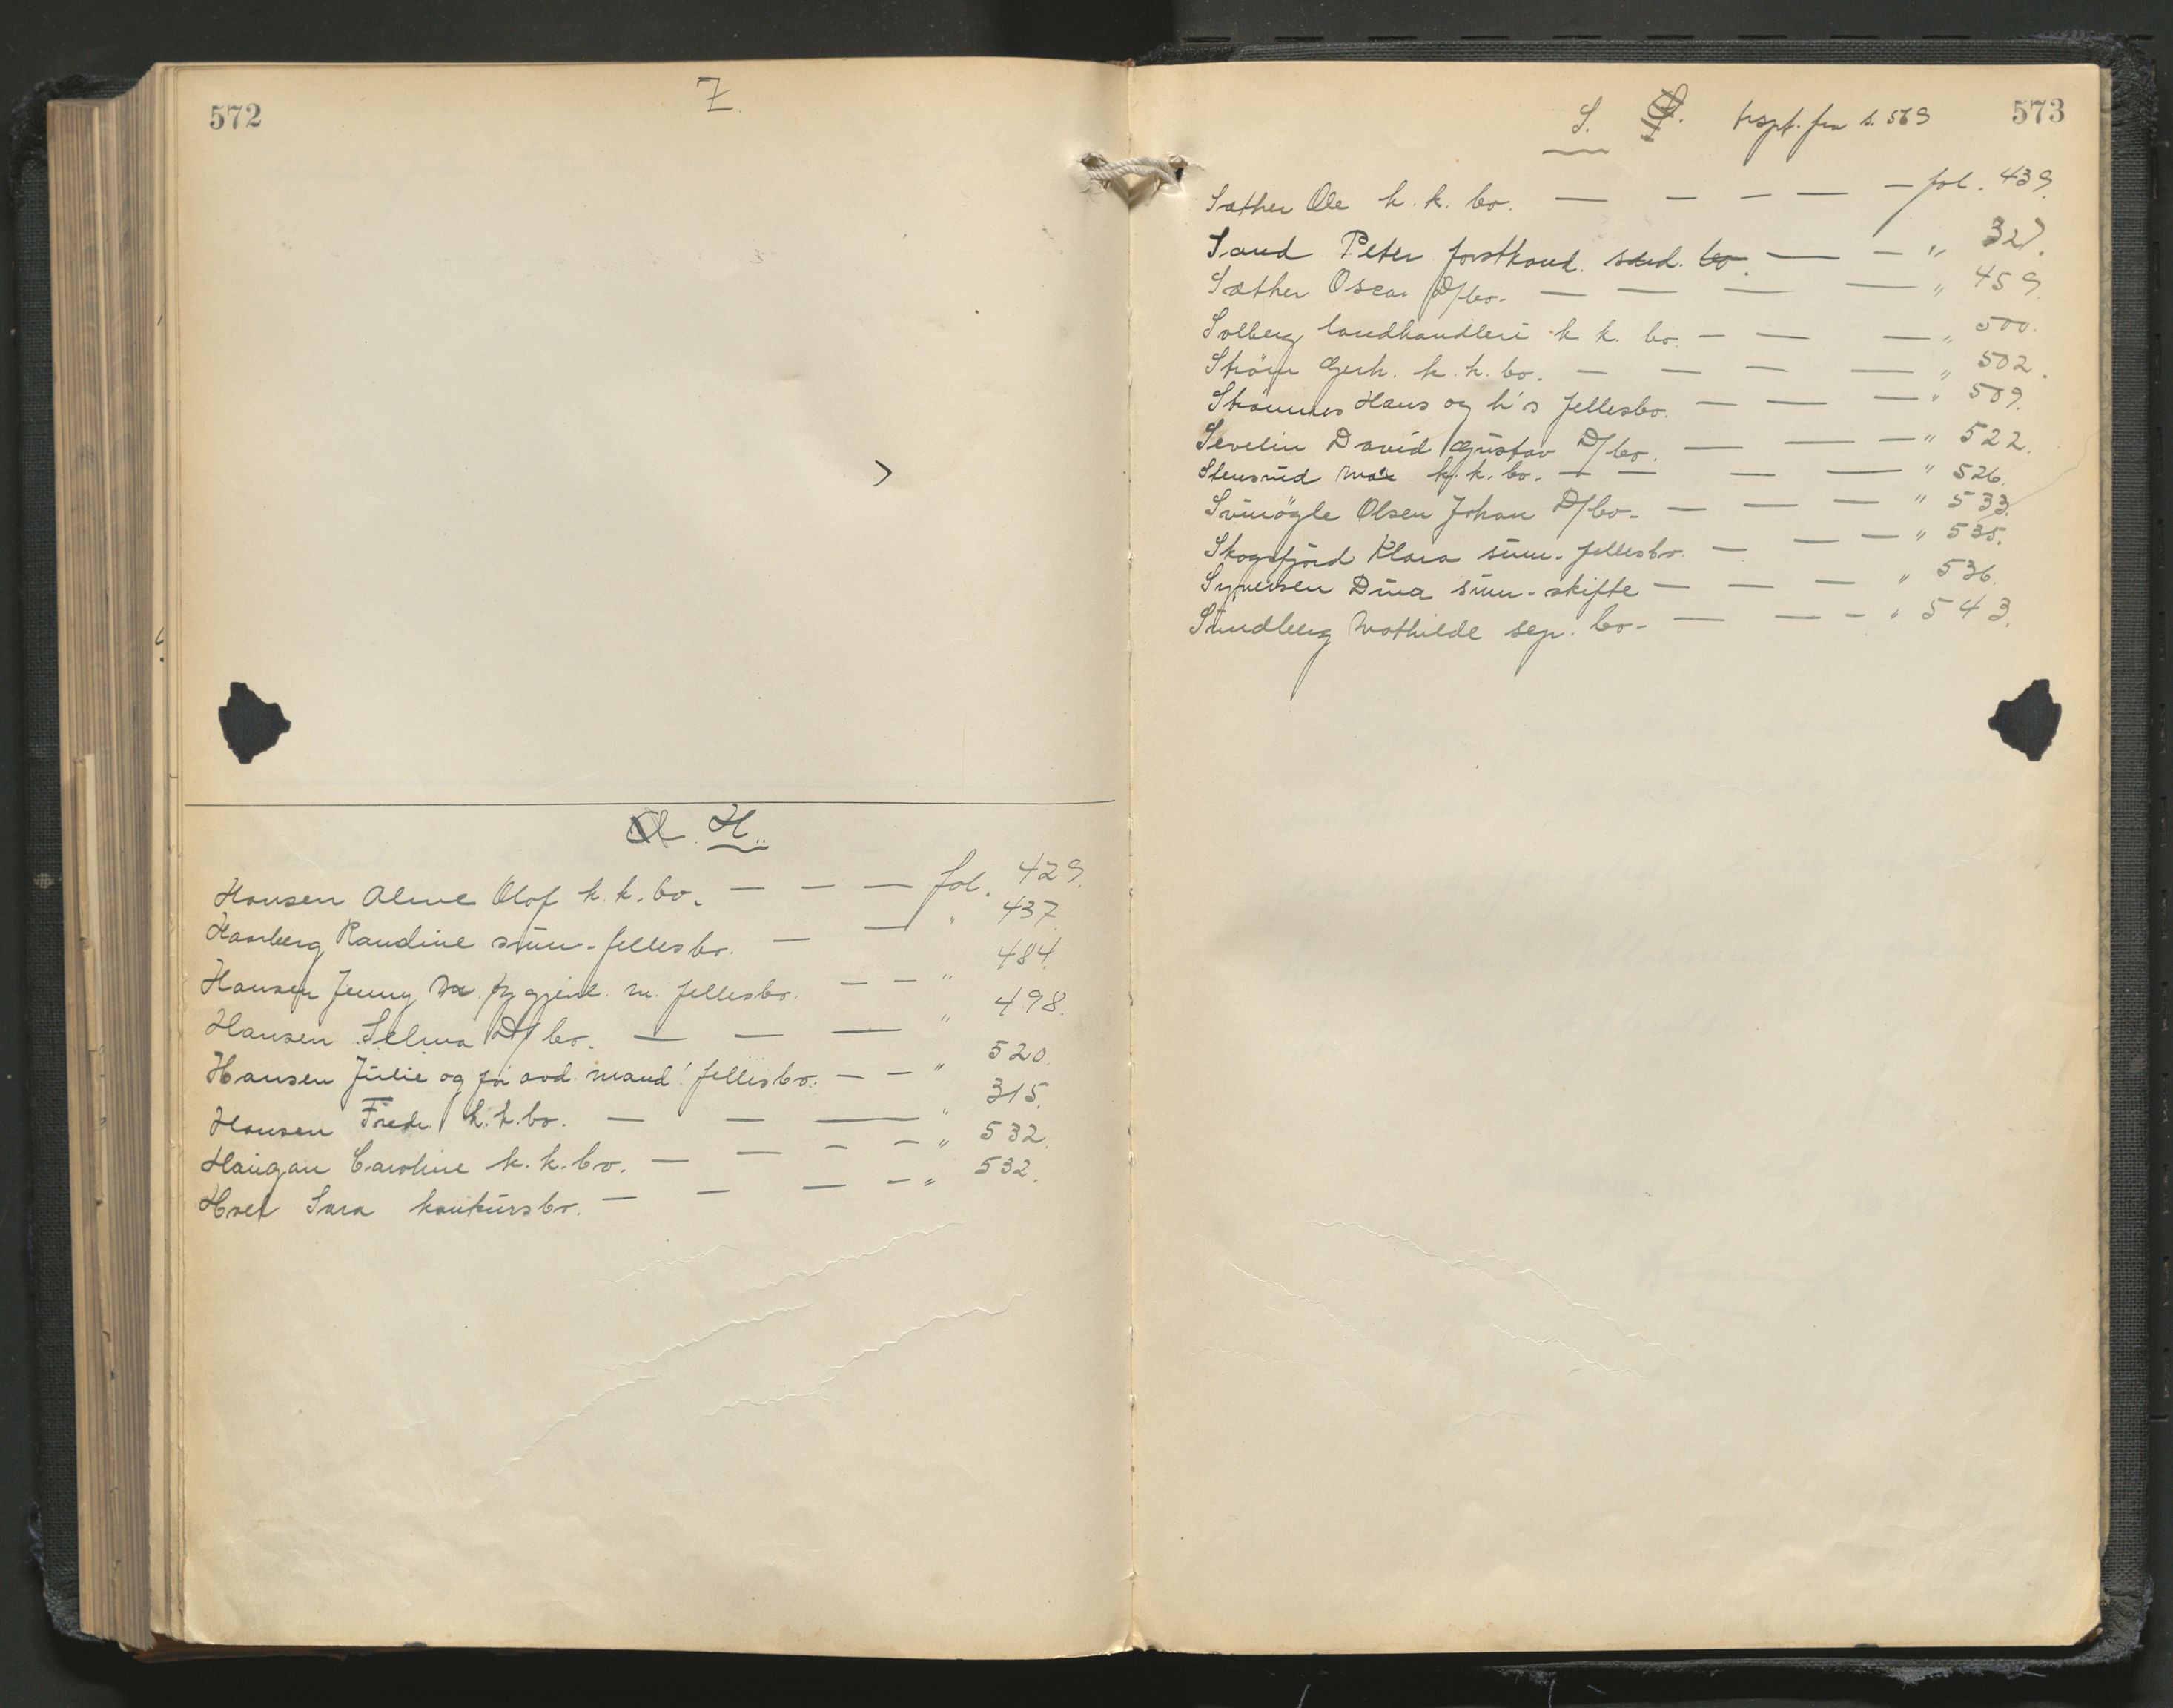 572
Z.
H.
Hansen Alme Olof k. k. bo. — — — fol. 429.
Haarberg Randine sum. fellesbo. — — " 437.
Hansen Jenny m. fellesbo. — — " 484.
Hansen Selma D/bo. — — — " 498.
Hansen Julie og før avd. mand! fellesbo. — — " 520.
Hansen Fredr. k. k. bo. — — — " 315.
Haugan Caroline k. k. bo. — — — — " 532.
Hoel Sara konkursbo. — — — — " 532.
573
S. trspt. fra s. 569
Sæther Ole k. k. bo. — — — — — fol. 439.
Sand Peter forstkand. bo. — — " 327.
Sæther Oscar D/bo. — — — — " 459.
Solberg landhandleri k. k. bo. — — — " 500.
Strøm Gerh. k. k. bo. — — — — " 502.
Strømnes Hans og h's fellesbo. — — — " 509.
Sevelin David Gustav D/bo. — — — " 522.
Stensrud k. k. bo. — — — — " 526.
Svinøgle Olsen Johan D/bo. — — — " 533.
Skogsfjord Klara sum. fellesbo. — — — " 535.
Syversen Dina sum. skifte — — — " 536.
Sundberg Mathilde sep. bo. — — — " 543.